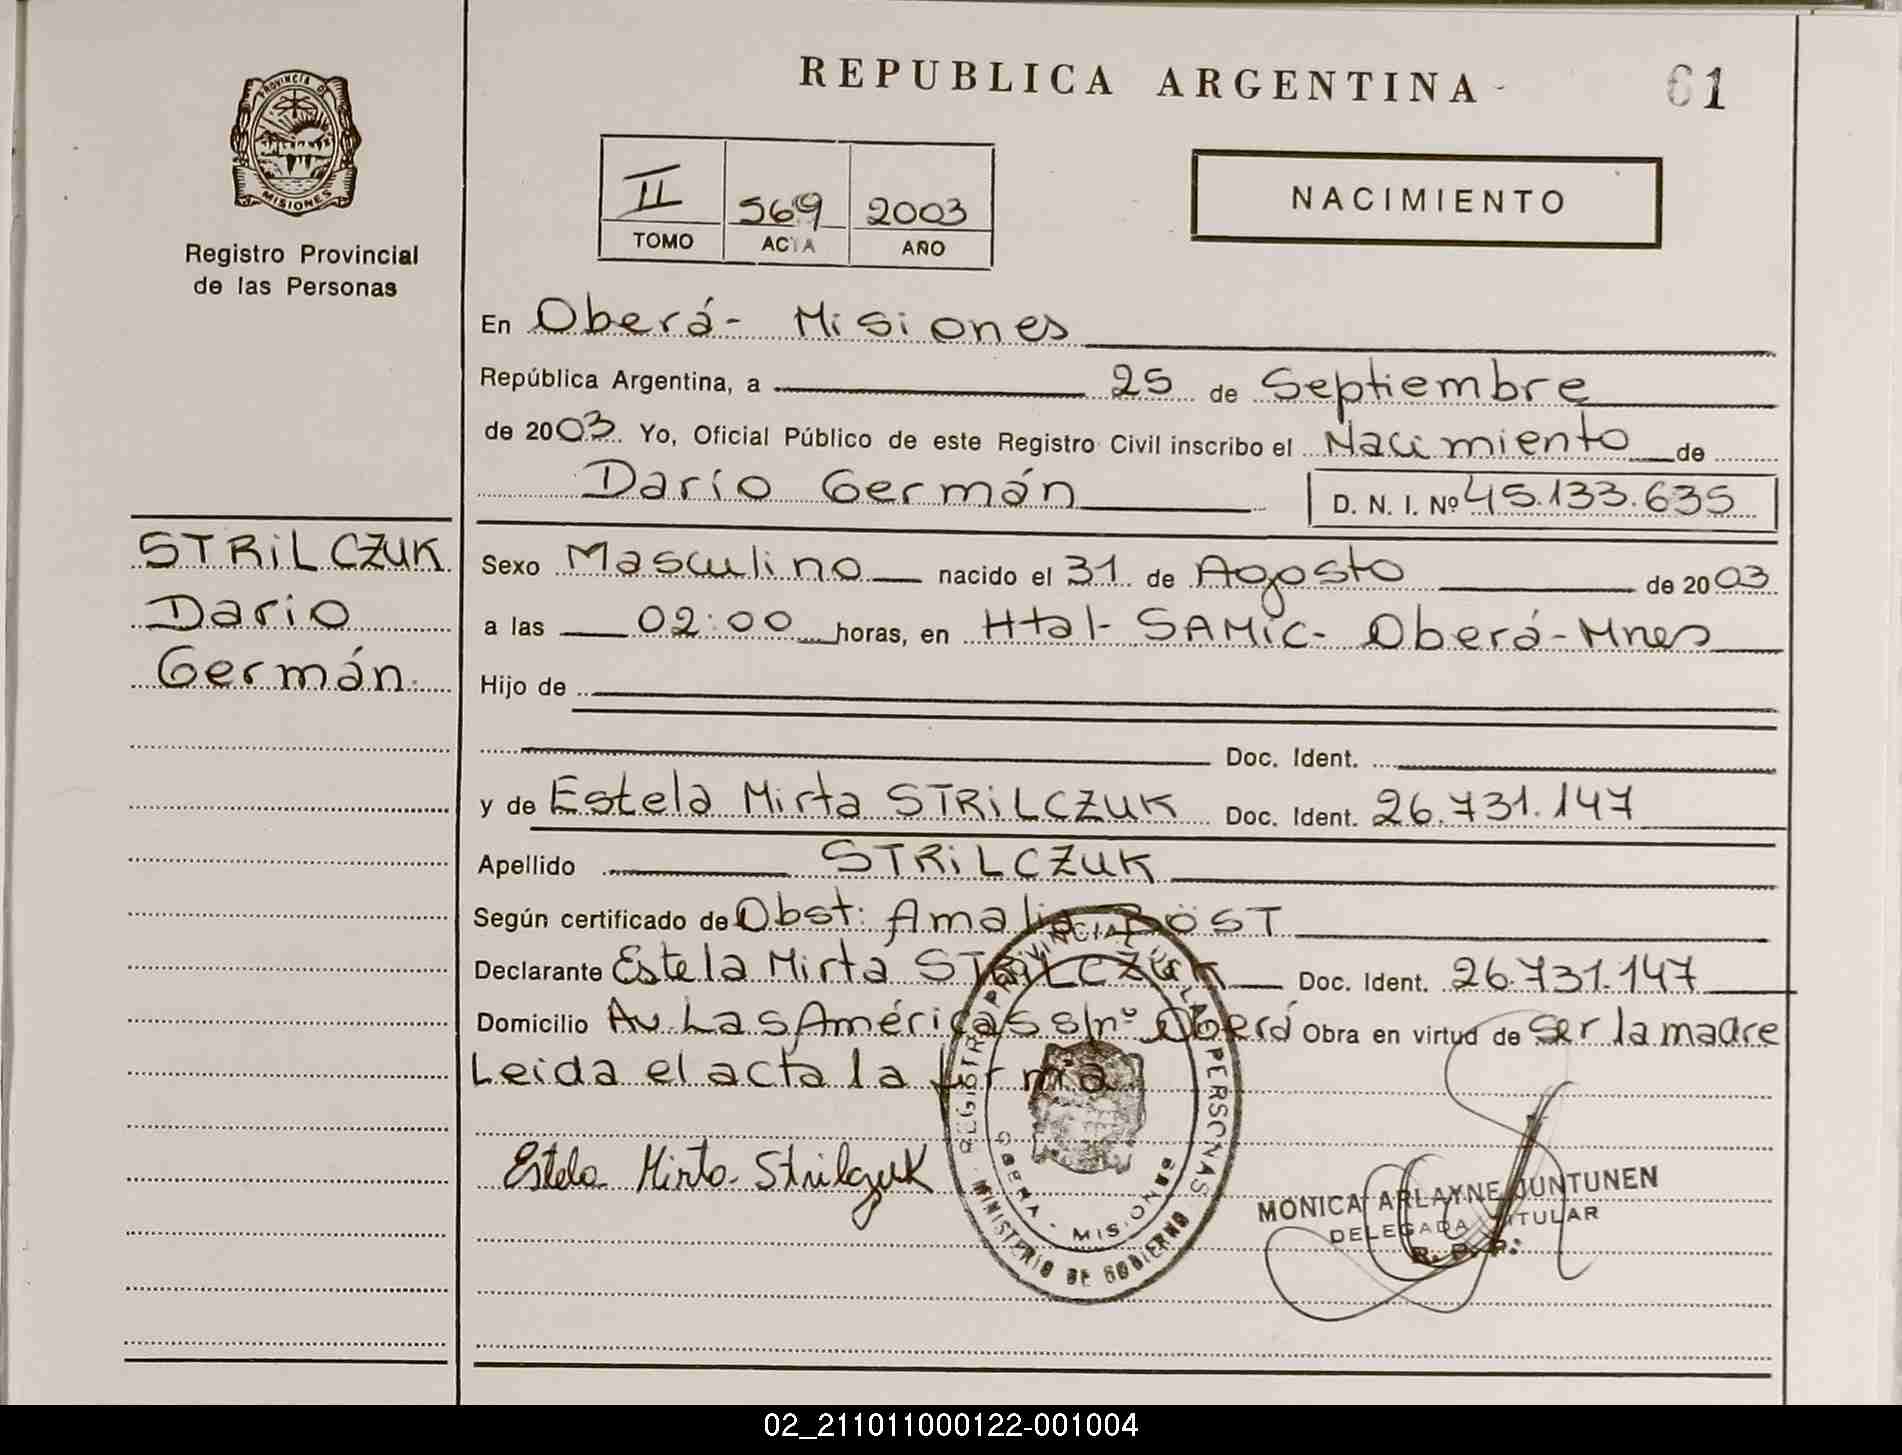 REPUBLICA ARGENTINA
61
PROVINCIA DE
MISIONES
Registro Provincial
de las Personas
II 569 2003
TOMO ACTA AÑO
NACIMIENTO
En Oberá- Misiones
República Argentina, a 25 de Septiembre
de 2003 Yo, Oficial Público de este Registro Civil inscribo el Nacimiento de
Darío Germán D. N. I. Nº 45.133.635
STRiLCZUK
Dario
Germán.
Sexo Masculino nacido el 31 de Agosto de 2003
a las 02:00 horas, en Htal- SAMiC- Oberá-Mnes
Hijo de
Doc. Ident.
y de Estela Mirta STRiLCZUK Doc. Ident. 26.731.147
Apellido STRiLCZUK
Según certificado de Obst: Amalia BÖST
Declarante Estela Mirta STRiLCZUK Doc. Ident. 26.731.147
Domicilio Av. Las Américas s/nº Oberá Obra en virtud de ser la madre
Leida el acta la firma
Estela Mirta Strilczuk
REGISTRO PROVINCIAL DE LAS PERSONAS
OBERA - MISIONES
MINISTERIO DE GOBIERNO
MONICA ARLAYNE JUNTUNEN
DELEGADA TITULAR
R. P. P.
02_211011000122-001004